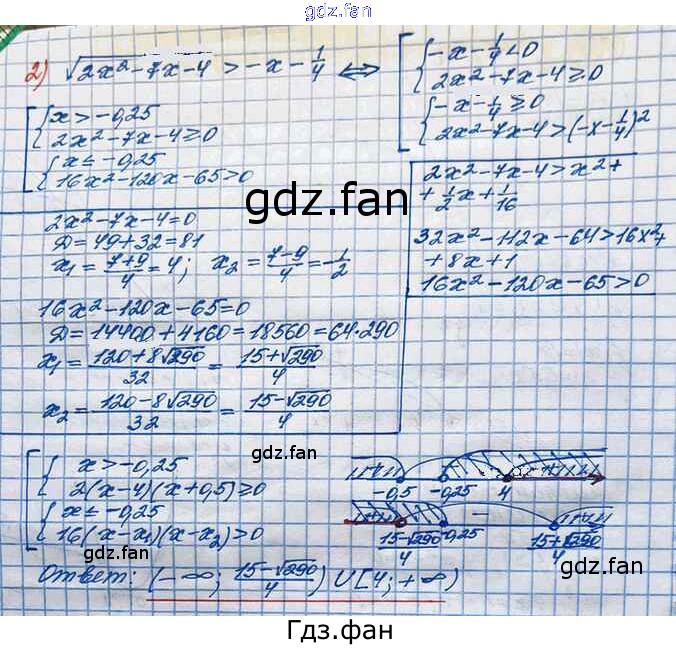 gdz.fan
2) √(2x²-7x-4) > -x - 1/4 ⟺ [ { -x - 1/4 < 0
{ 2x² - 7x - 4 ≥ 0
{ -x - 1/4 ≥ 0
{ 2x² - 7x - 4 > (-x - 1/4)²
[ { x > -0,25
{ 2x² - 7x - 4 ≥ 0
{ x ≤ -0,25
{ 16x² - 120x - 65 > 0
2x² - 7x - 4 > x² +
+ 1/2 x + 1/16
32x² - 112x - 64 > 16x² +
+ 8x + 1
16x² - 120x - 65 > 0
gdz.fan
2x² - 7x - 4 = 0
D = 49 + 32 = 81
x₁ = (7+9)/4 = 4; x₂ = (7-9)/4 = -1/2
16x² - 120x - 65 = 0
D = 14400 + 4160 = 18560 = 64·290
x₁ = (120+8√290)/32 = (15+√290)/4
x₂ = (120-8√290)/32 = (15-√290)/4
gdz.fan
gdz.fan
[ { x > -0,25
{ 2(x-4)(x+0,5) ≥ 0
{ x ≤ -0,25
{ 16(x-x₁)(x-x₂) > 0
-0,5 -0,25 4
(15-√290)/4 -0,25 (15+√290)/4
Ответ: (-∞; (15-√290)/4) ∪ [4; +∞)
gdz.fan
gdz.fan
Гдз.фан